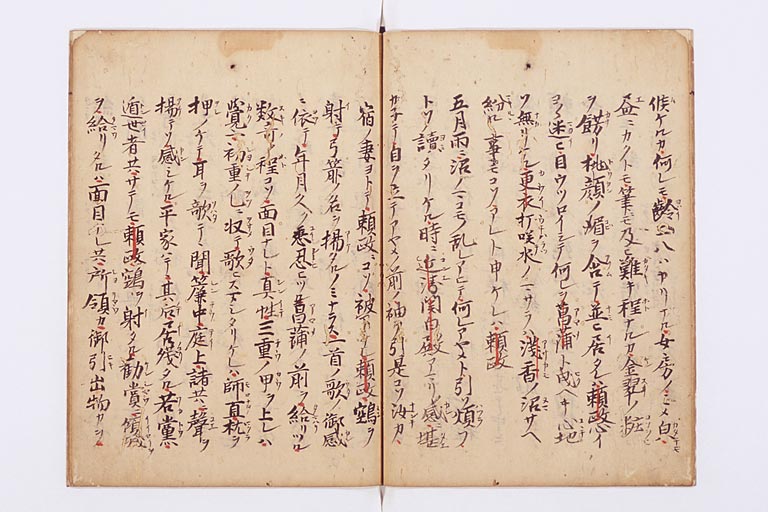 候ケルカ何レモ齢二八ハカリナル女房ノミメ白
絵ニカクトモ筆モ及ヒ難キ程ナルカ金翠ノ粧
ヲ餝リ桃顔ノ媚ヲ含テ並ヒ居タレハ頼政心イ
ヨ々迷ヒ目ウツロイシテ何レヲ菖蒲ト心地
ソ無リケル更衣打咲水ノマサラハ浅香ノ沼サヘ
紛ルヽ事モコソアレト申ケレハ頼政
五月雨ニ沼ノマコモノ乱レアヒテ何レアヤメト引ソ煩フ
トソ読タリケル時ニ近衛関白殿アマリノ感ニ堪
カネテ自ラ立テアヤメノ前ノ袖ヲ引是コソ汝カ
宿ノ妻ヨトテ頼政ニコソ被下ケレ頼政鵼ヲ
射テ弓箭ノ名ヲ揚タルノミナラス一首ノ歌ノ御感
ニ依テ年月久ク忍ヒツル菖蒲ノ前ヲ給リツル
数奇ノ程コソ面目ナレト真性三重ノ甲ヲ上レハ
覚一初重ノ乙ニ収テ歌ヒスマシタリケレハ師直枕ヲ
押ノケテ耳ヲ歌テ聞簾中庭上諸共ニ声ヲ
揚テソ感シケル平家テ其後居残タル若党
遁世者共サテモ頼政鵼ヲ射タル勧賞ニ
ヲ給リタルハ面目ナレ共所領カ御引出物カヲ